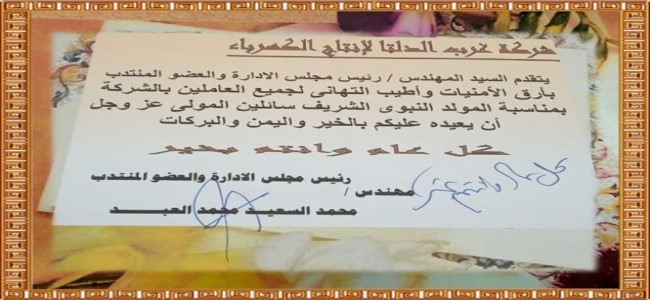 شركة غرب الدلتا لإنتاج الكهرباء
يتقدم السيد المهندس / رئيس مجلس الادارة والعضو المنتدب
بأرق الأمنيات وأطيب التهانى لجميع العاملين بالشركة
بمناسبة المولد النبوى الشريف سائلين المولى عز وجل
أن يعيده عليكم بالخير واليمن والبركات
كل عام وانتم بخير
كل عام وانتم بخير
رئيس مجلس الادارة والعضو المنتدب
مهندس /
محمد السعيد محمد العبد